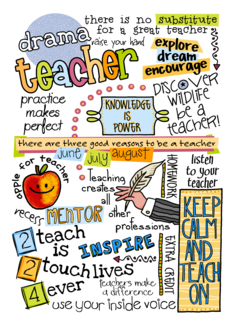 there is no substitute
for a great teacher
drama
raise your hand
explore
dream
encourage
teacher
DISCOVER
WILDLIFE
be a
teacher!
practice
makes
perfect
KNOWLEDGE
IS
POWER
there are three good reasons to be a teacher
june july august
apple for teacher
HOMEWORK
listen
to your
teacher
Teaching
creates
all
other
professions
recess
MENTOR
KEEP
CALM
AND
TEACH
ON
2 teach
is
INSPIRE
2 touch lives
4 ever
EXTRA CREDIT
teachers make
a difference
use your inside voice